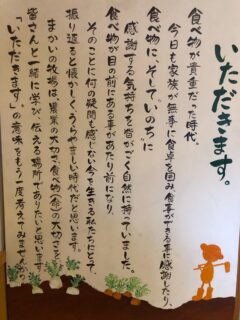 いただきます。
食べ物が貴重だった時代。
今日も家族が無事に食卓を囲み、食事ができる事に感謝したり、
食べ物に、そして、いのちに
感謝する気持ちを皆がごく自然に持っていました。
食べ物が目の前にある事があたり前になり、
そのことに何の疑問も感じない今を生きる私たちにとって、
振り返ると懐かしく、うらやましい時代だと思います。
まかいの牧場は、農業の大切さ、食べ物(命)の大切さを
皆さんと一緒に学び、伝える場所でありたいと思います。
「いただきます」の意味をもう一度考えてみませんか